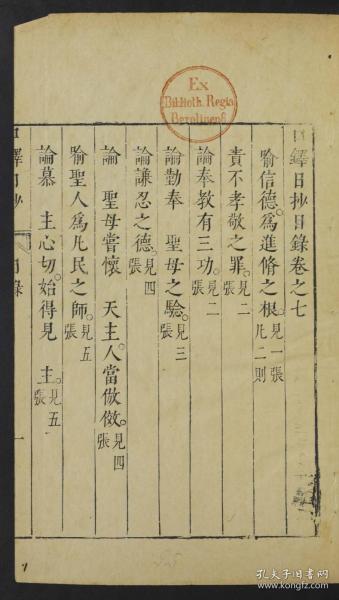 Ex
Biblioth. Regia
Berolinens.
口鐸日抄目錄卷之七
喻信德為進脩之根。見一張凡二則
責不孝敬之罪。見二張
論奉教有三功。見二張
論勤奉 聖母之驗。見三張
論謙忍之德。見四張
論 聖母嘗懷 天主。人當倣傚。見四張
喻聖人為凡民之師。見五張
論慕 主心切。始得見 主。見五張
口鐸日抄 目錄 一
孔夫子旧书网